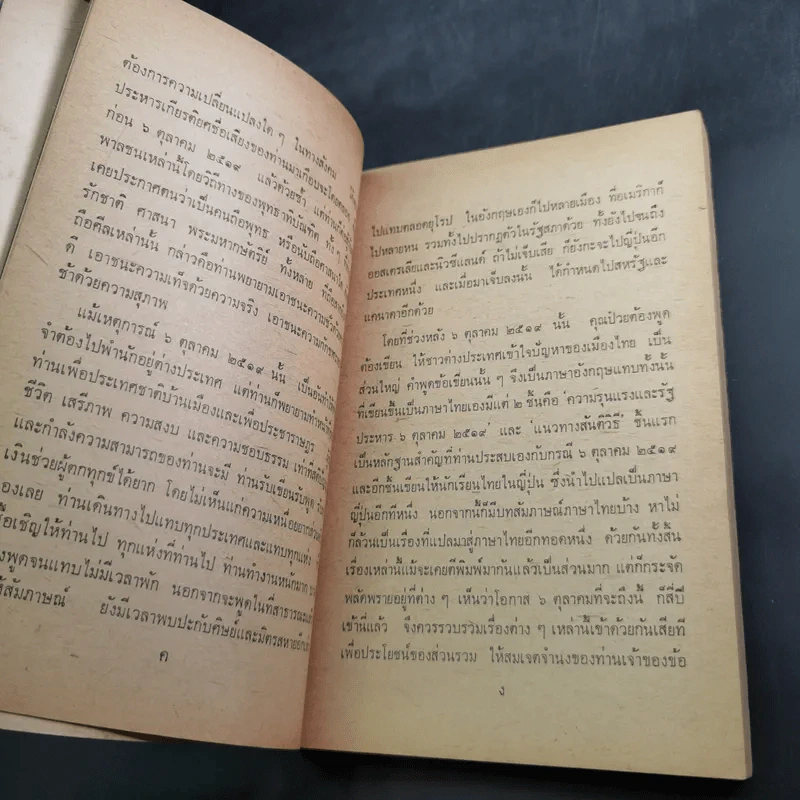 ต้องการความเปลี่ยนแปลงใด ๆ ในทางสังคม
ประหารเกียรติยศชื่อเสียงของท่านมาเกือบจะโดยตลอด
ก่อน ๖ ตุลาคม ๒๕๑๙ แล้วด้วยซ้ำ แต่ท่านก็
พาลชนเหล่านี้โดยวิถีทางของพุทธาทิบัณฑิต ทั้ง ๆ ที่
เคยประกาศตนว่าเป็นคนถือพุทธ หรือนับถือศาสนาใด
รักชาติ ศาสนา พระมหากษัตริย์ ทั้งหลาย ที่
ถือศีลเหล่านั้น กล่าวคือท่านพยายามเอาชนะความชั่วด้วยความ
ดี เอาชนะความเท็จด้วยความจริง เอาชนะความ
ช้าด้วยความสุภาพ
แม้เหตุการณ์ ๖ ตุลาคม ๒๕๑๙ นั้น เป็นอันทำให้
จำต้องไปพำนักอยู่ต่างประเทศ แต่ท่านก็พยายามทำหน้าที่
ท่านเพื่อประเทศชาติบ้านเมืองและเพื่อประชาราษฎร
ชีวิต เสรีภาพ ความสงบ และความชอบธรรม เท่าที่
และกำลังความสามารถของท่านจะมี ท่านรับเขียนรับพูด
เงินช่วยผู้ตกทุกข์ได้ยาก โดยไม่เห็นแก่ความเหนื่อยยาก
องเลย ท่านเดินทางไปแทบทุกประเทศและแทบทุกแห่ง
เชิญให้ท่านไป ทุกแห่งที่ท่านไป ท่านทำงานหนักมาก
งพูดจนแทบไม่มีเวลาพัก นอกจากจะพูดในที่สาธารณะแล้ว
ห้สัมภาษณ์ ยังมีเวลาพบปะกับศิษย์และมิตรสหายอีก
ค
ไปแทบตลอดยุโรป ในอังกฤษเองก็ไปหลายเมือง ที่อเมริกาก็
ไปหลายหน รวมทั้งไปปรากฏตัวในรัฐสภาด้วย ทั้งยังไปจนถึง
ออสเตรเลียและนิวซีแลนด์ ถ้าไม่เจ็บเสีย ก็ยังกะจะไปญี่ปุ่นอีก
ประเทศหนึ่ง และเมื่อมาเจ็บลงนั้น ได้กำหนดไปสหรัฐและ
แคนาดาอีกด้วย
โดยที่ช่วงหลัง ๖ ตุลาคม ๒๕๑๙ นั้น คุณป๋วยต้องพูด
ต้องเขียน ให้ชาวต่างประเทศเข้าใจปัญหาของเมืองไทย เป็น
ส่วนใหญ่ คำพูดข้อเขียนนั้น ๆ จึงเป็นภาษาอังกฤษแทบทั้งนั้น
ที่เขียนขึ้นเป็นภาษาไทยเองมีแต่ ๒ ชิ้นคือ 'ความรุนแรงและรัฐ
ประหาร ๖ ตุลาคม ๒๕๑๙' และ 'แนวทางสันติวิธี' ชิ้นแรก
เป็นหลักฐานสำคัญที่ท่านประสบเองกับกรณี ๖ ตุลาคม ๒๕๑๙
และอีกชิ้นเขียนให้นักเรียนไทยในญี่ปุ่น ซึ่งนำไปแปลเป็นภาษา
ญี่ปุ่นอีกทีหนึ่ง นอกจากนี้ก็มีบทสัมภาษณ์ภาษาไทยบ้าง หาไม่
ก็ล้วนเป็นเรื่องที่แปลมาสู่ภาษาไทยอีกทอดหนึ่ง ด้วยกันทั้งสิ้น
เรื่องเหล่านี้แม้จะเคยตีพิมพ์มากันแล้วเป็นส่วนมาก แต่ก็กระจัด
พลัดพรายอยู่ที่ต่าง ๆ เห็นว่าโอกาส ๖ ตุลาคมที่จะถึงนี้ ก็สี่ปี
เข้านี่แล้ว จึงควรรวบรวมเรื่องต่าง ๆ เหล่านี้เข้าด้วยกันเสียที
เพื่อประโยชน์ของส่วนรวม ให้สมเจตจำนงของท่านเจ้าของข้อ
ง